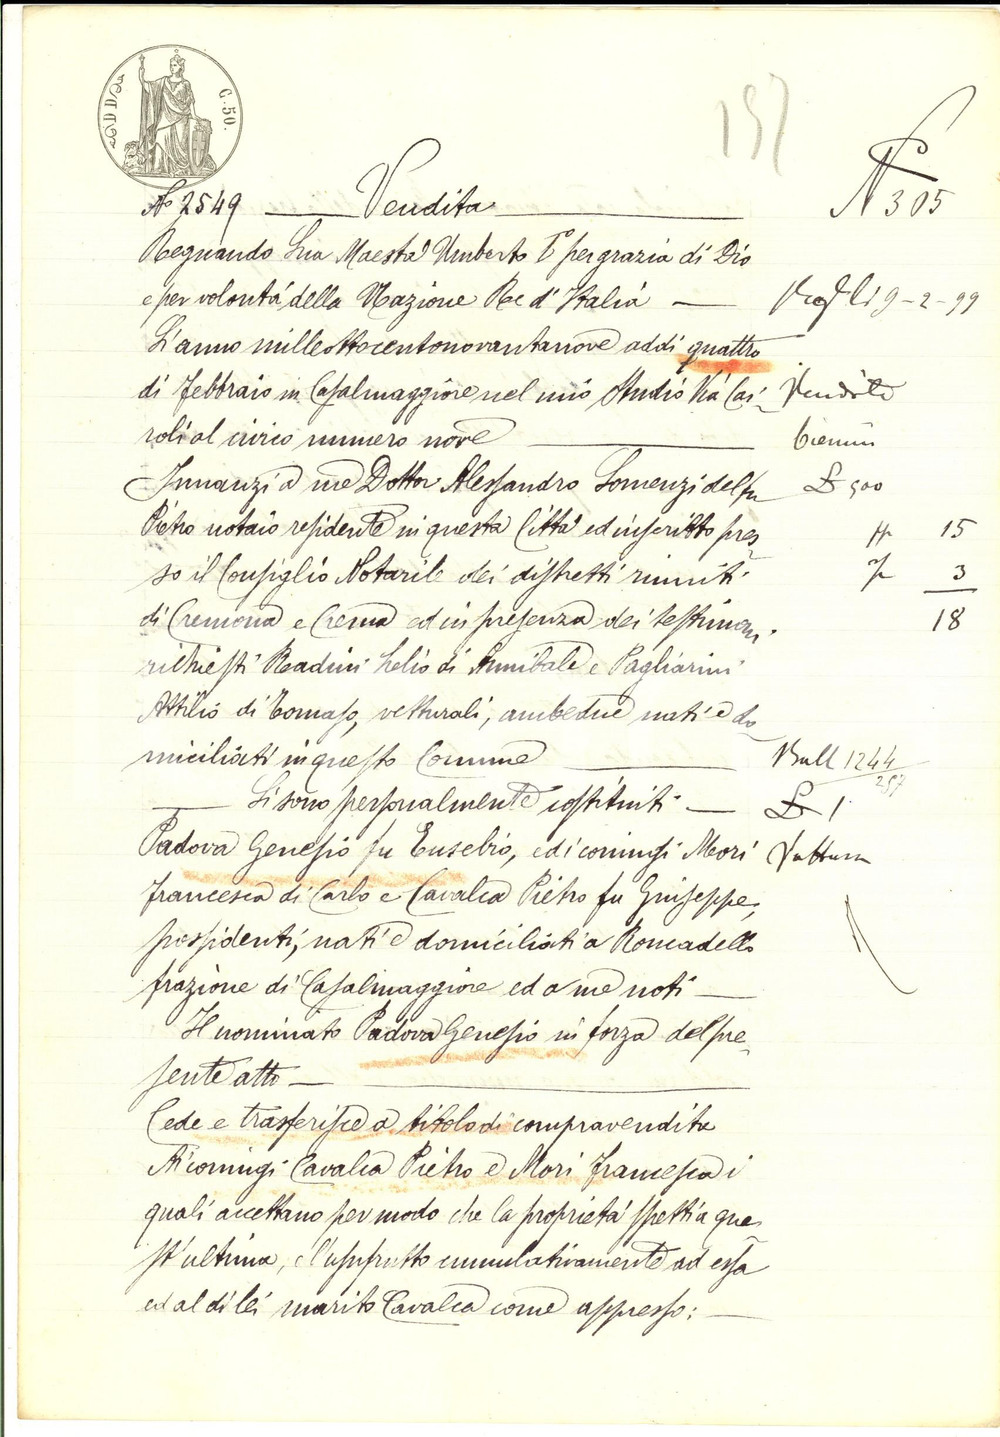 C. 50.
157
N° 305
N° 2549 Vendita
Regnando Sua Maestà Umberto I° per grazia di Dio
e per volontà della Nazione Re d'Italia
9-2-99
L'anno milleottocentonovantanove addì quattro
di febbraio in Casalmaggiore nel mio Studio Via Cai-
Vendita
roli al civico numero nove
Innanzi a me Dottor Alessandro Somenzi del fu
£ 500
Pietro notaio residente in questa Città ed inscritto pres-
15
so il Consiglio Notarile dei distretti riuniti
3
di Cremona e Crema ed in presenza dei testimoni
18
richiesti Readini Lelio di Annibale e Pagliarini
Attilio di Tomaso, vetturali, ambedue nati e do-
miciliati in questo Comune
Boll 1244
257
Si sono personalmente costituiti
£ 1
Padova Genesio fu Eusebio, ed i coniugi Mori
Francesca di Carlo e Cavalca Pietro fu Giuseppe,
possidenti, nati e domiciliati a Roncadello
frazione di Casalmaggiore ed a me noti
Il nominato Padova Genesio in forza del pre-
sente atto
Cede e trasferisce a titolo di compravendita
Ai coniugi Cavalca Pietro e Mori Francesca i
quali accettano per modo che la proprietà spetti a que-
st'ultima, e l'usufrutto cumulativamente ad essa
ed al di lei marito Cavalca come appresso: